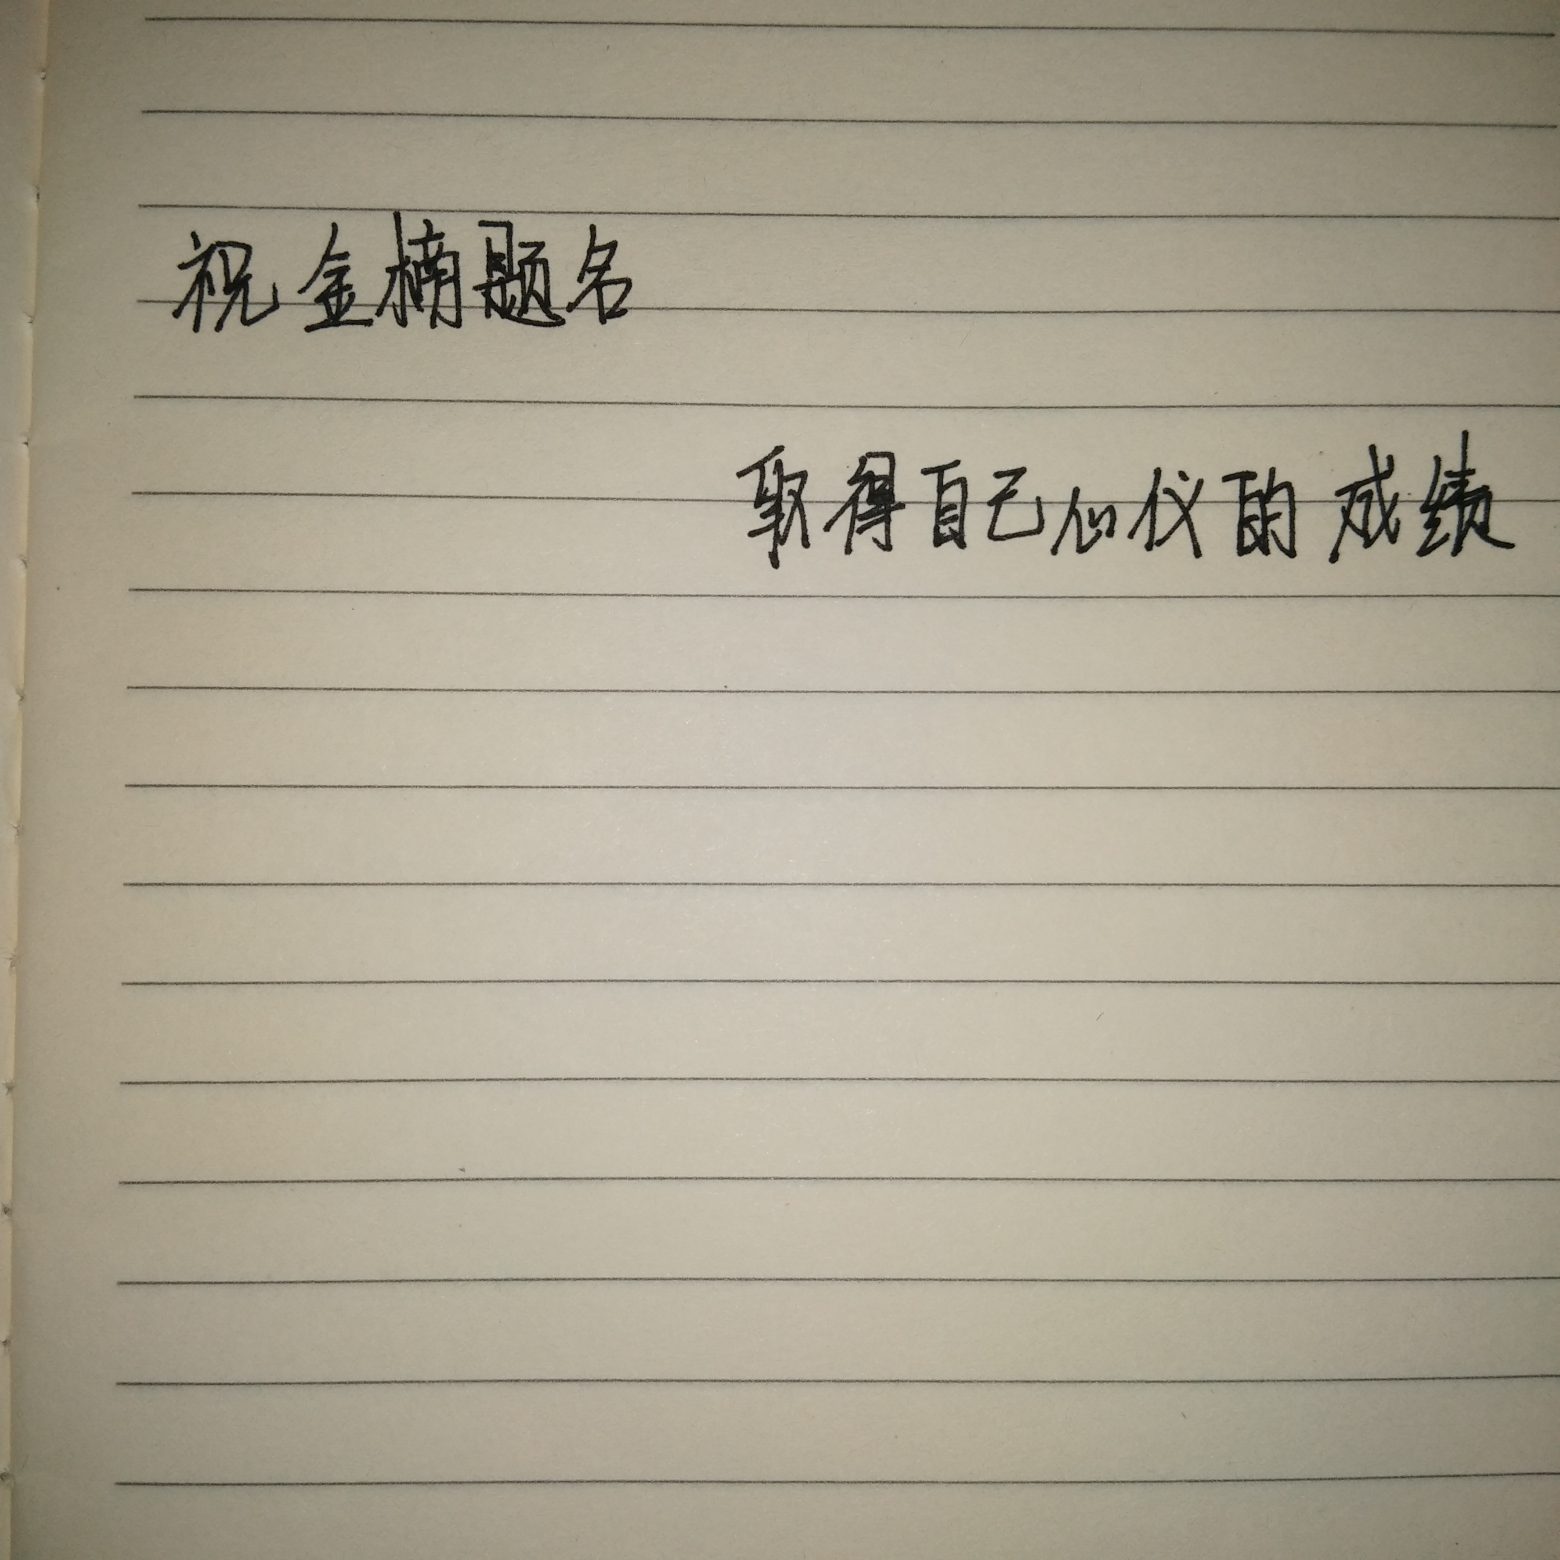 祝金榜题名
取得自己心仪的成绩